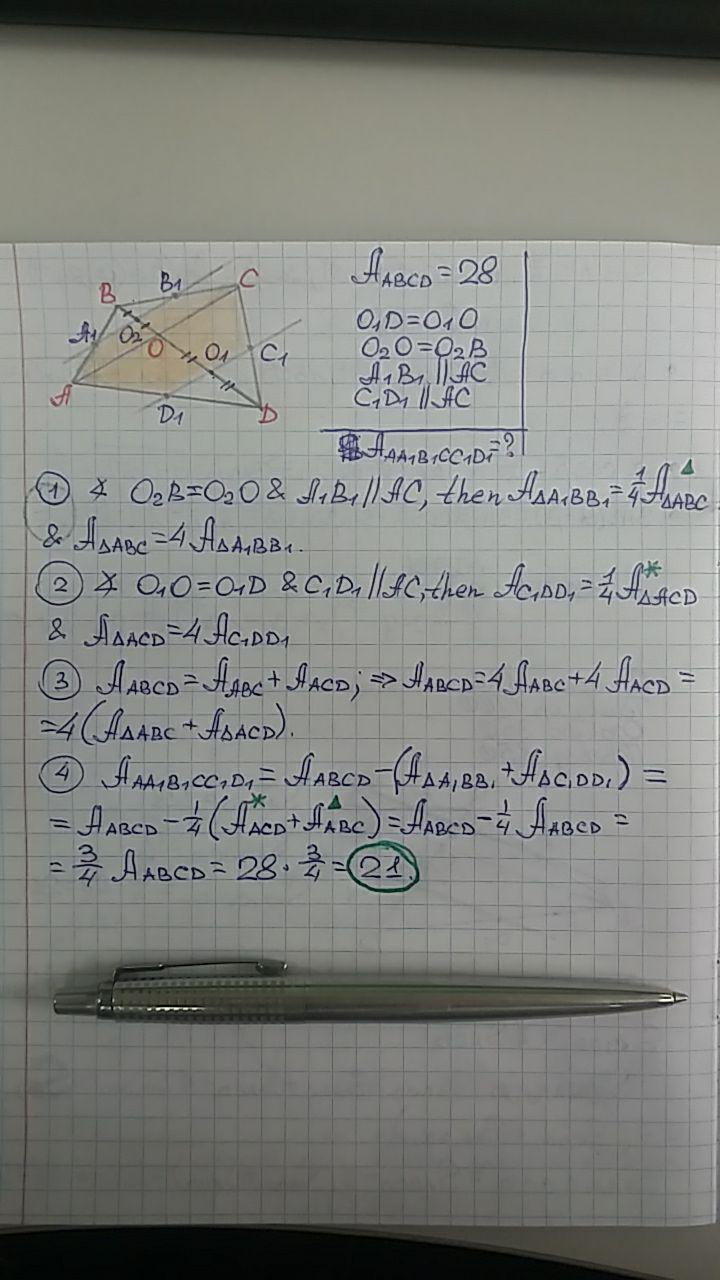 B B1 C
A1 O2 O O1 C1
A D1 D
AABCD=28
O1D=O1O
O2O=O2B
A1B1 || AC
C1D1 || AC
AAA1B1CC1D1=?
① ∡ O2B=O2O & A1B1//AC, then AΔA1BB1=1/4 AΔABC▲
& AΔABC=4 AΔA1BB1.
② ∡ O1O=O1D & C1D1//AC, then AC1DD1=1/4 AΔACD*
& AΔACD=4 AC1DD1
③ AABCD=AABC+AACD; ⇒ AABCD=4 AABC+4 AACD =
=4(AΔABC+AΔACD).
④ AAA1B1CC1D1=AABCD-(AΔA1BB1+AΔC1DD1) =
= AABCD-1/4(A*ACD+A▲ABC)=AABCD-1/4 AABCD =
= 3/4 AABCD = 28 · 3/4 = 21.